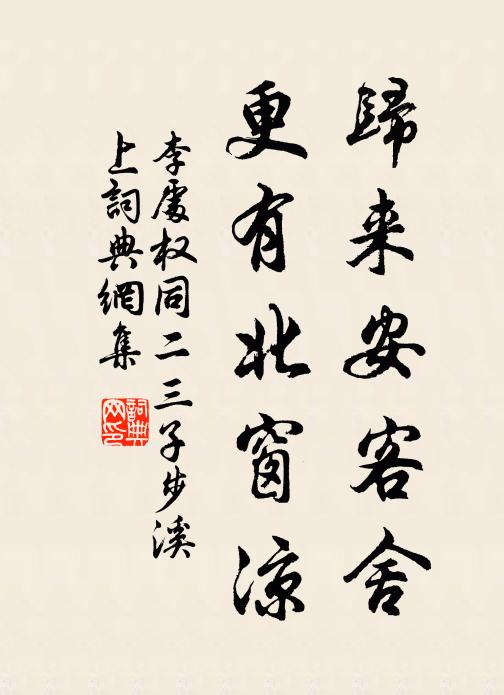 歸来安客舍
更有北窗涼
李處权同二三子步溪
上詞典網集
詞典網印